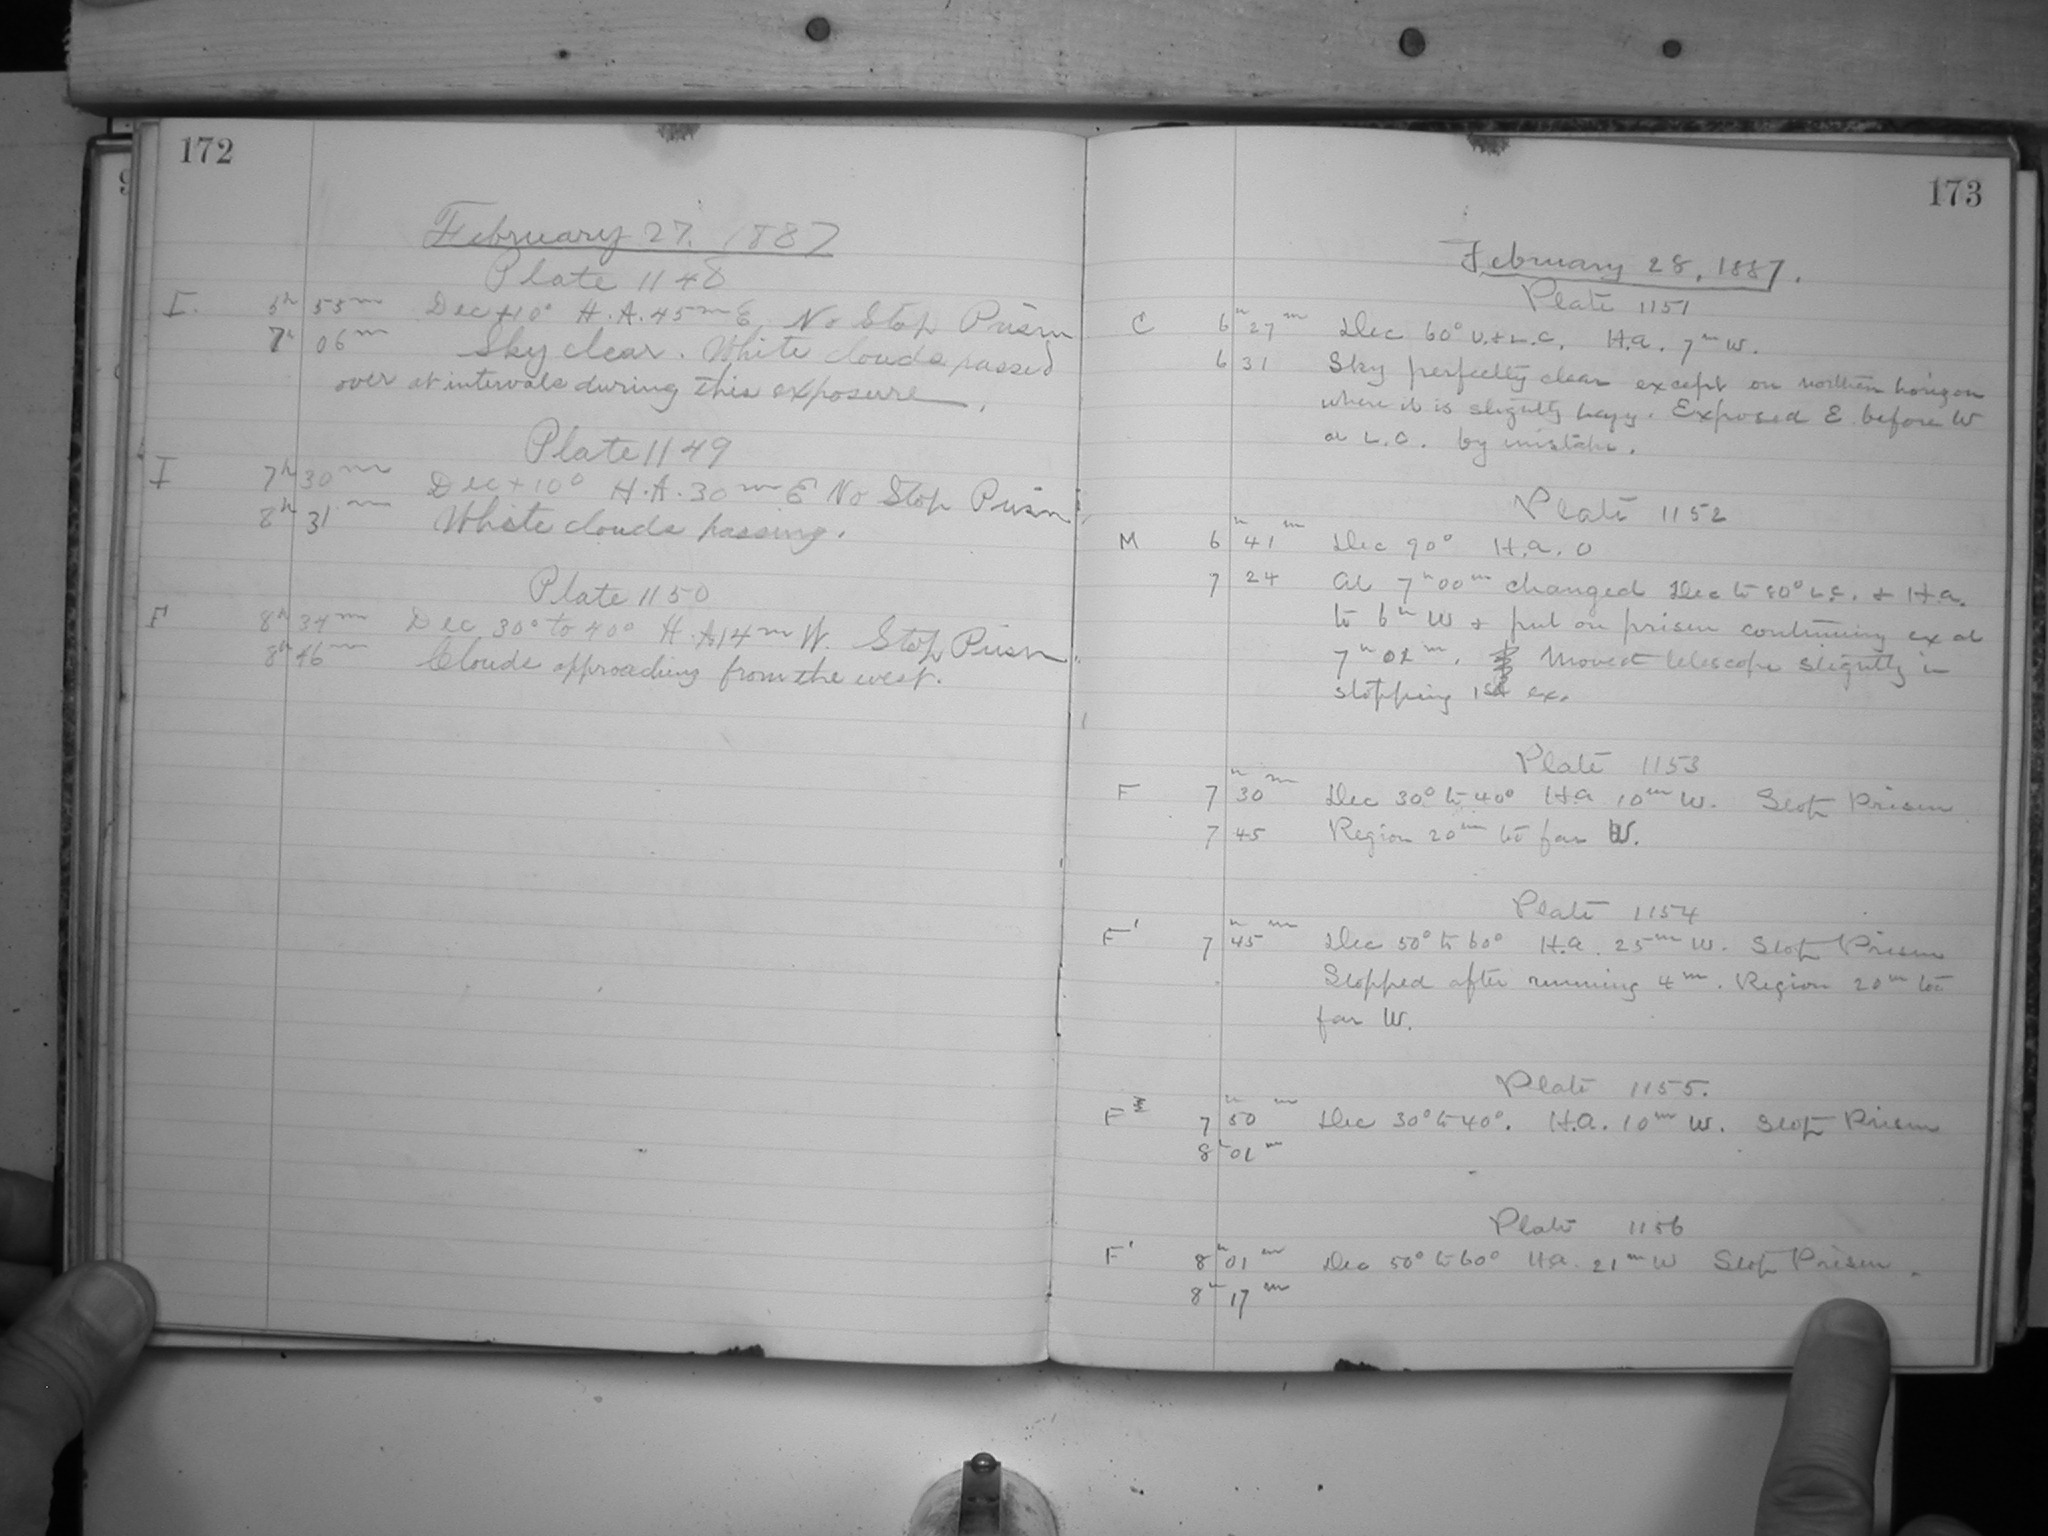 172
February 27, 1887
Plate 1148
I. 5h 55m Dec +10° H.A. 45m E. No Stop Prism
7h 06m Sky clear. White clouds passed
over at intervals during this exposure.
Plate 1149
I 7h 30m Dec + 10° H.A. 30m E No Stop Prism
8h 31m White clouds passing.
Plate 1150
F 8h 34m Dec 30° to 40° H.A. 14m W. Stop Prism.
8h 46m Clouds approaching from the west.
173
February 28, 1887.
Plate 1151
C 6h 27m Dec 60° U.+L.C. H.A. 7m W.
6 31 Sky perfectly clear except on northern horizon
where it is slightly hazy. Exposed E. before W
at L.C. by mistake.
Plate 1152
M 6h 41m Dec 90° H.A. 0
7 24 At 7h 00m changed Dec to 80° L.C. + H.A.
to 6h W + put on prism continuing ex at
7h 02m. Moved telescope slightly in
stopping 1st ex.
Plate 1153
F 7h 30m Dec 30° to 40° H.A 10m W. Stop Prism
7 45 Region 20m too far W.
Plate 1154
F' 7h 45m Dec 50° to 60° H.A. 25m W. Stop Prism
Stopped after running 4m. Region 20m too
far W.
Plate 1155.
F 7h 50m Dec 30° to 40°. H.A. 10m W. Stop Prism
8h 01m
Plate 1156
F' 8h 01m Dec 50° to 60° H.A. 21m W Stop Prism.
8h 17m